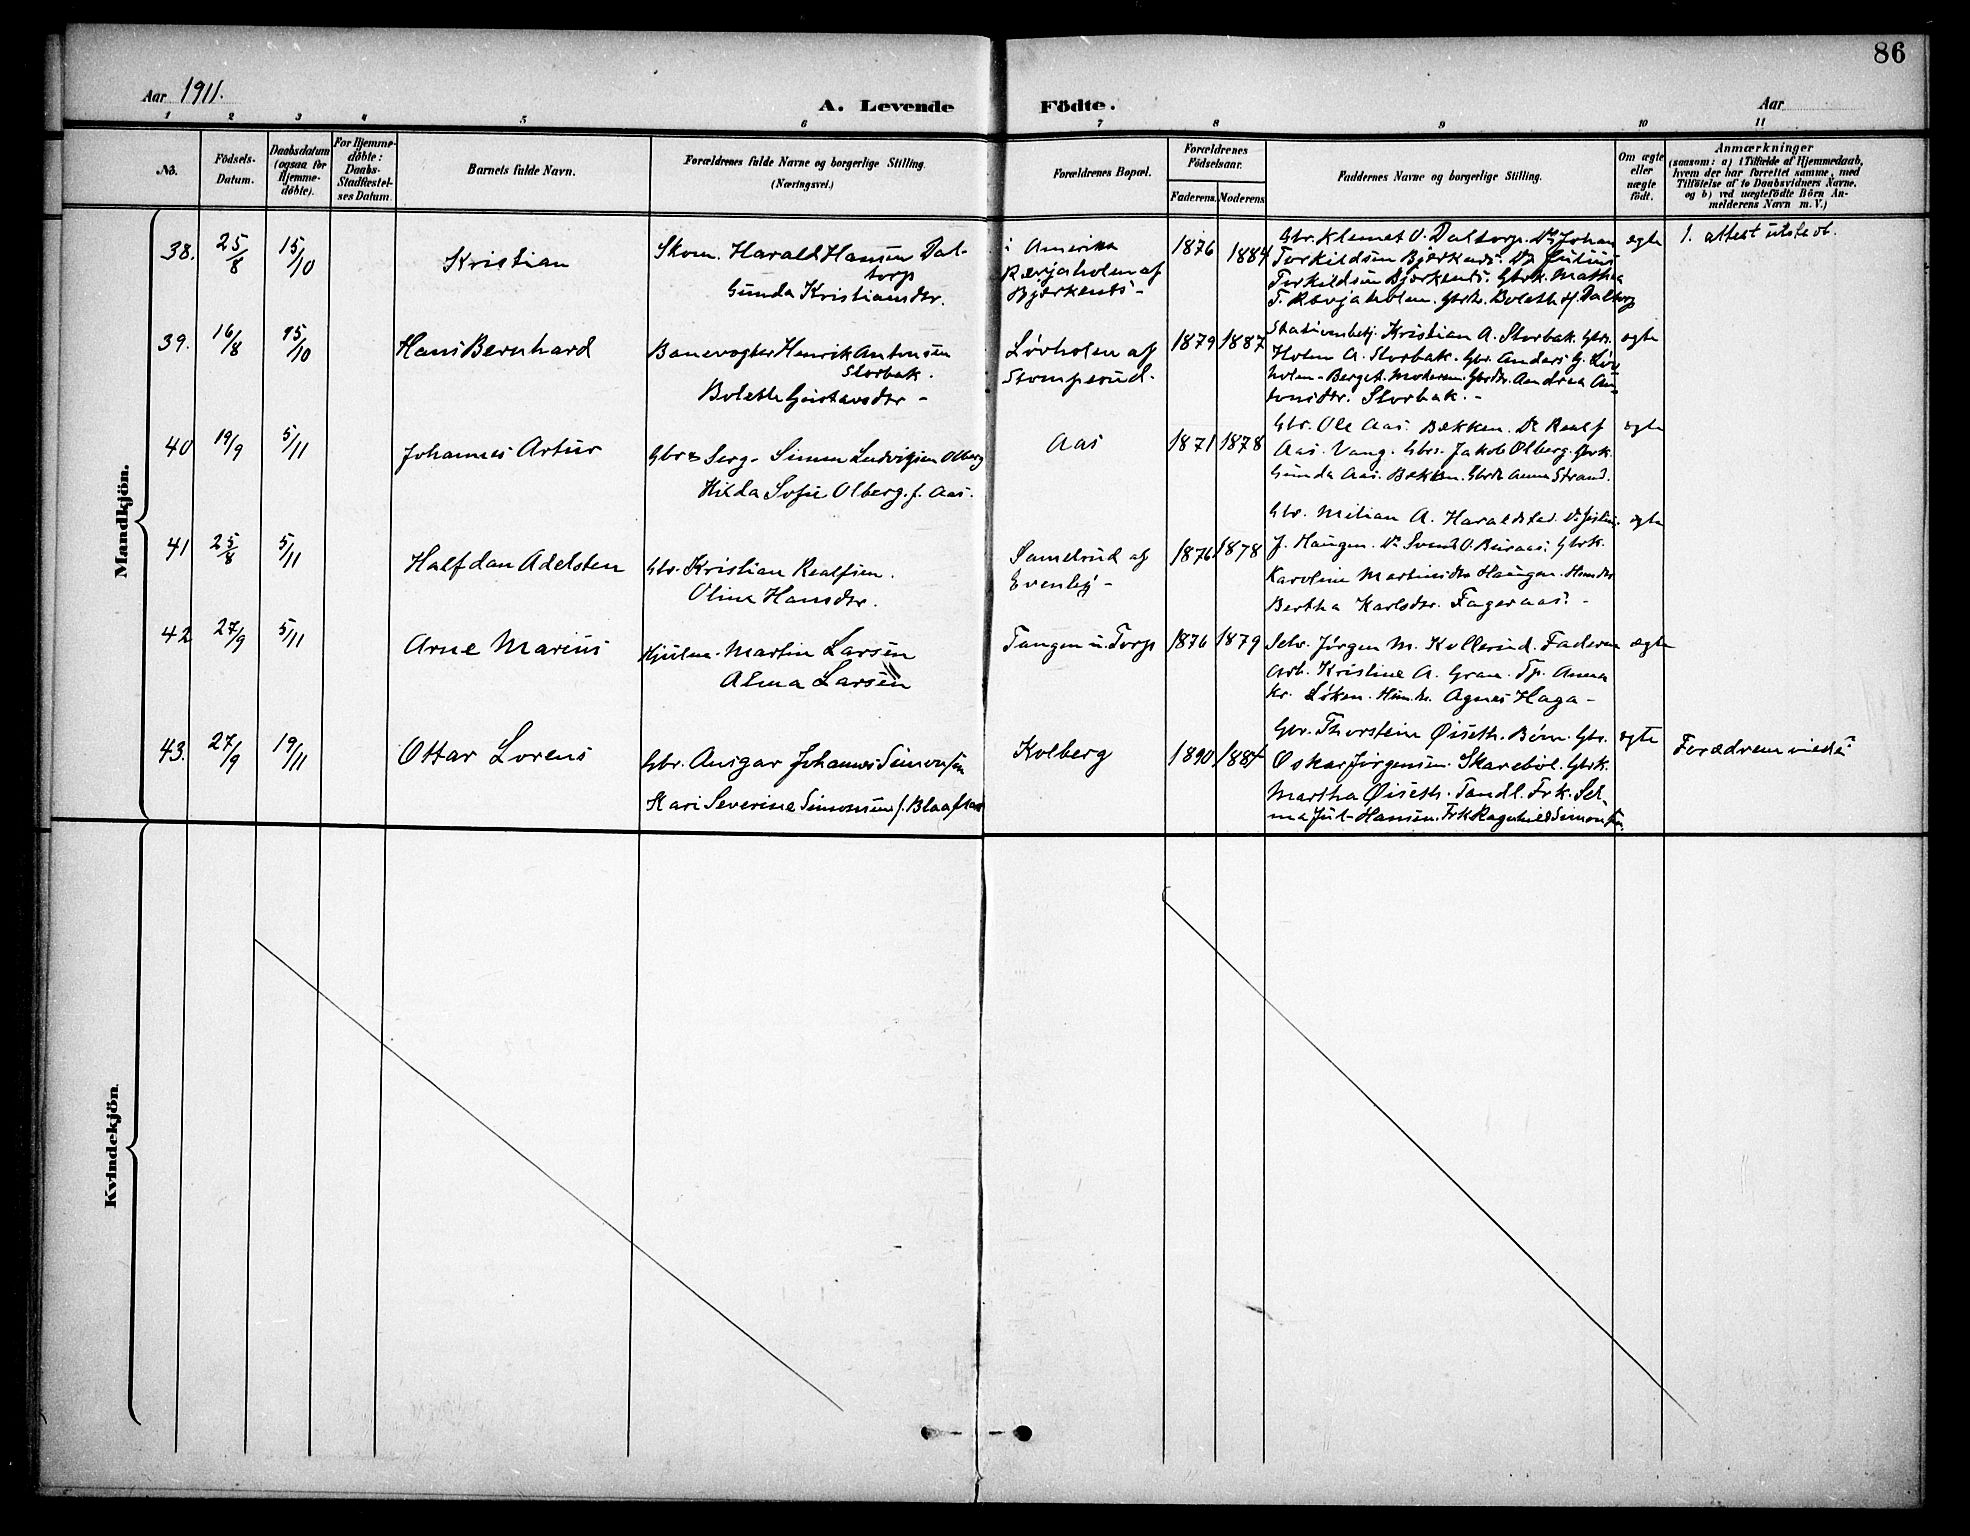 86
Aar 1911.
A. Levende Födte.
Aar
1 2 3 4 5 6 7 8 9 10 11
No.
Födsels-
Datum.
Daabsdatum
(ogsaa for
Hjemme-
döbte).
For Hjemme-
döbte:
Daabs-
Stadfæstel-
ses Datum
Barnets fulde Navn.
Forældrenes fulde Navne og borgerlige Stilling.
(Næringsvei.)
Forældrenes Bopæl.
Forældrenes
Födselsaar.
Faderens. Moderens
Faddernes Navne og borgerlige Stilling.
Om ægte
eller
uægte
födt.
Anmærkninger
(saasom: a) i Tilfælde af Hjemmedaab,
hvem der har forrettet samme, med
Tilföielse af to Daabsvidners Navne.
og b) ved uægtefödte Börn An-
melderens Navn m. V.)
Mandkjön.
38. 25/8 15/10
Kristian
Skom. Harald Hansen Dal-
torp
Gunda Kristiansdr.
i Amerika
Rævjaholen af
Bjerkenes-
1876 1884
Gbr. Klemet O. Daltorp. Do Johan
Torkildsen Bjerkenes. Do Julius
Torkildsen Bjerkenes. Gbrk. Mathea
T. Rævjaholen. Gbrk. Boleth H. Daltorp
ægte
1. attest utsted.
39. 16/8 15/10
Hans Bernhard
Banevogter Henrik Antonsen
Storbak.
Bolette Gustavsdr -
Løvholen af
Stomperud.
1879 1887
Stationsbetj. Kristian A. Storbak. Gbr.
Holm A. Storbak. Gbr. Anders G. Løv
holen - Berget. Moderen. Gbrdr. Andrea An-
tonsdr. Storbak. -
ægte
40 19/9 5/11
Johannes Artur
Gbr & Serg. Simen Ludvigsen Olberg
Hilda Sofie Olberg f. Aas.
Aas
1871 1878
Gbr. Ole Aas. Bækken. Do Realf
Aas. Vang. Gbr. Jakob Olberg. Gbrk.
Gunda Aas. Bekken. Gbrdr Anna Strand.
ægte
41 25/8 5/11
Halfdan Adelsten
Gbr. Kristian Realfsen.
Oline Hansdr.
Sandrud af
Evenby -
1876 1878
Gbr. Milian A. Haraldstad. Do
J. Haugen. Do Svend O. Buraas. Gbrk.
Karoline Martinsdr Haugen. Hmdr
Bertha Karlsdr. Fageraas. -
ægte
42 27/9 5/11
Arne Marius
Hjulm. Martin Larsen
Alma Larsen
Tangen u. Torp
1876 1879
Selv. Jørgen M. Kollerud. Faderen
Arb. Kristine A. Gran. Tp. Anna
Kr. Løken. Hmdr. Agnes Haga -
ægte
43. 27/9 19/11
Ottar Lorens
Gbr. Ansgar Johannes Simonsen
Kari Severine Simonsen f. Blaafla
Kolberg
1890 1884
Gbr. Thorstein Øiseth. Børn. Gbr.
Oskar Jørgensen. Skarebøl. Gbrk.
Martha Øiseth. Tandl. Frk. Sel-
ma Jul-Hansen. Frk Ragnhild Simonsen.
ægte
Forældrene viede:
Kvindekjön